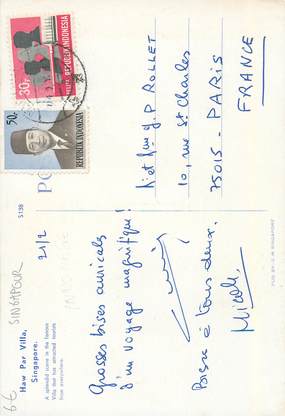 Haw Par Villa,
Singapore.
A splendid scene in the famous
Villa that has attracted tourists
from everywhere.
SINGAPOUR
6€
5138
21/2
Grosses bises amicales
d'un voyage magnifique!
Baisers à tous deux.
Nicole
30r
REPUBLIK INDONESIA
50r
REPUBLIK INDONESIA
PO
M et Mme J.P ROLLET
10, rue St Charles
75015 - PARIS
FRANCE